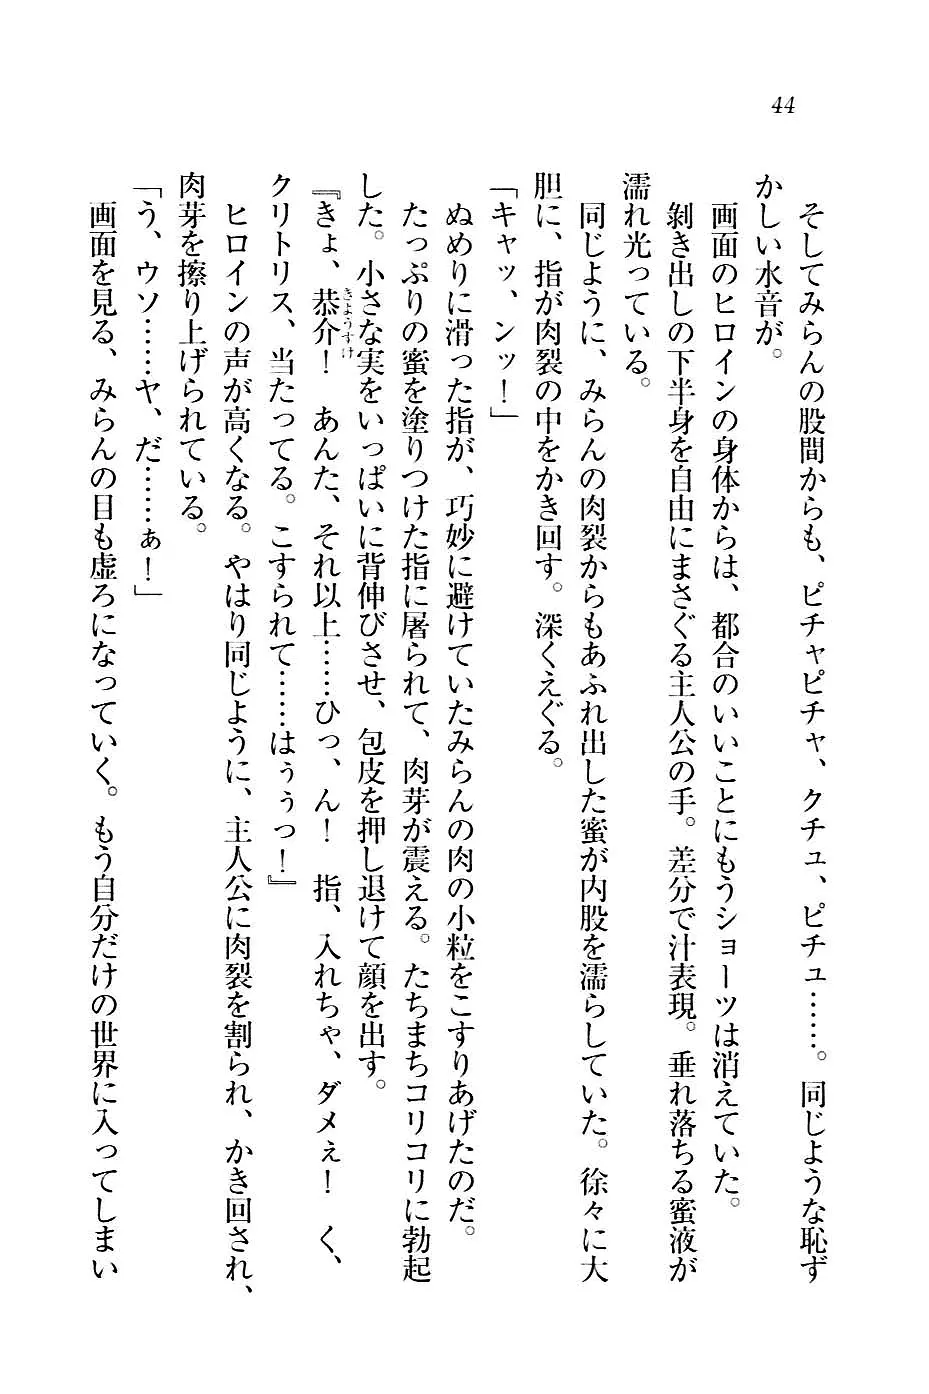 44
そしてみらんの股間からも、ピチャピチャ、クチュ、ピチュ……。同じような恥ず
かしい水音が。
画面のヒロインの身体からは、都合のいいことにもうショーツは消えていた。
剝き出しの下半身を自由にまさぐる主人公の手。差分で汁表現。垂れ落ちる蜜液が
濡れ光っている。
同じように、みらんの肉裂からもあふれ出した蜜が内股を濡らしていた。徐々に大
胆に、指が肉裂の中をかき回す。深くえぐる。
「キャッ、ンッ！」
ぬめりに滑った指が、巧妙に避けていたみらんの肉の小粒をこすりあげたのだ。
たっぷりの蜜を塗りつけた指に屠られて、肉芽が震える。たちまちコリコリに勃起
した。小さな実をいっぱいに背伸びさせ、包皮を押し退けて顔を出す。
『きょ、恭介！　あんた、それ以上……ひっ、ん！　指、入れちゃ、ダメぇ！　く、
きょうすけ
クリトリス、当たってる。こすられて……はぅぅっ！』
ヒロインの声が高くなる。やはり同じように、主人公に肉裂を割られ、かき回され、
肉芽を擦り上げられている。
「う、ウソ……ヤ、だ……ぁ！」
画面を見る、みらんの目も虚ろになっていく。もう自分だけの世界に入ってしまい